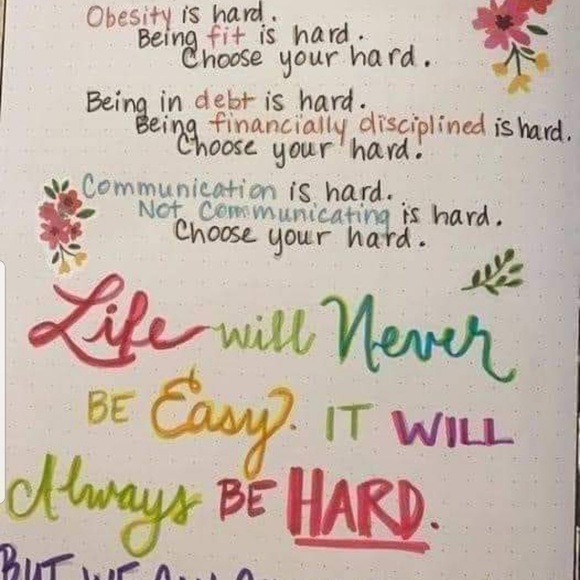 Obesity is hard.
Being fit is hard.
Choose your hard.
Being in debt is hard.
Being financially disciplined is hard.
Choose your hard.
Communication is hard.
Not Communicating is hard.
Choose your hard.
Life will Never
BE Easy. IT WILL
Always BE HARD.
BUT WE